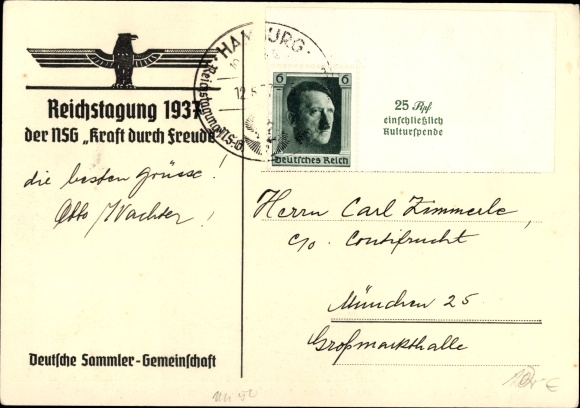 Reichstagung 1937
der NSG „Kraft durch Freude"
die besten Grüsse!
Otto Wachter!
Deutsche Sammler-Gemeinschaft
HAMBURG
12.6.37
Reichstagung NS-G
6 6
Deutsches Reich
25 Rpf
einschließlich
Kulturspende
Herrn Carl Zimmerle,
c/o. Contifrucht
München 25.
Großmarkthalle